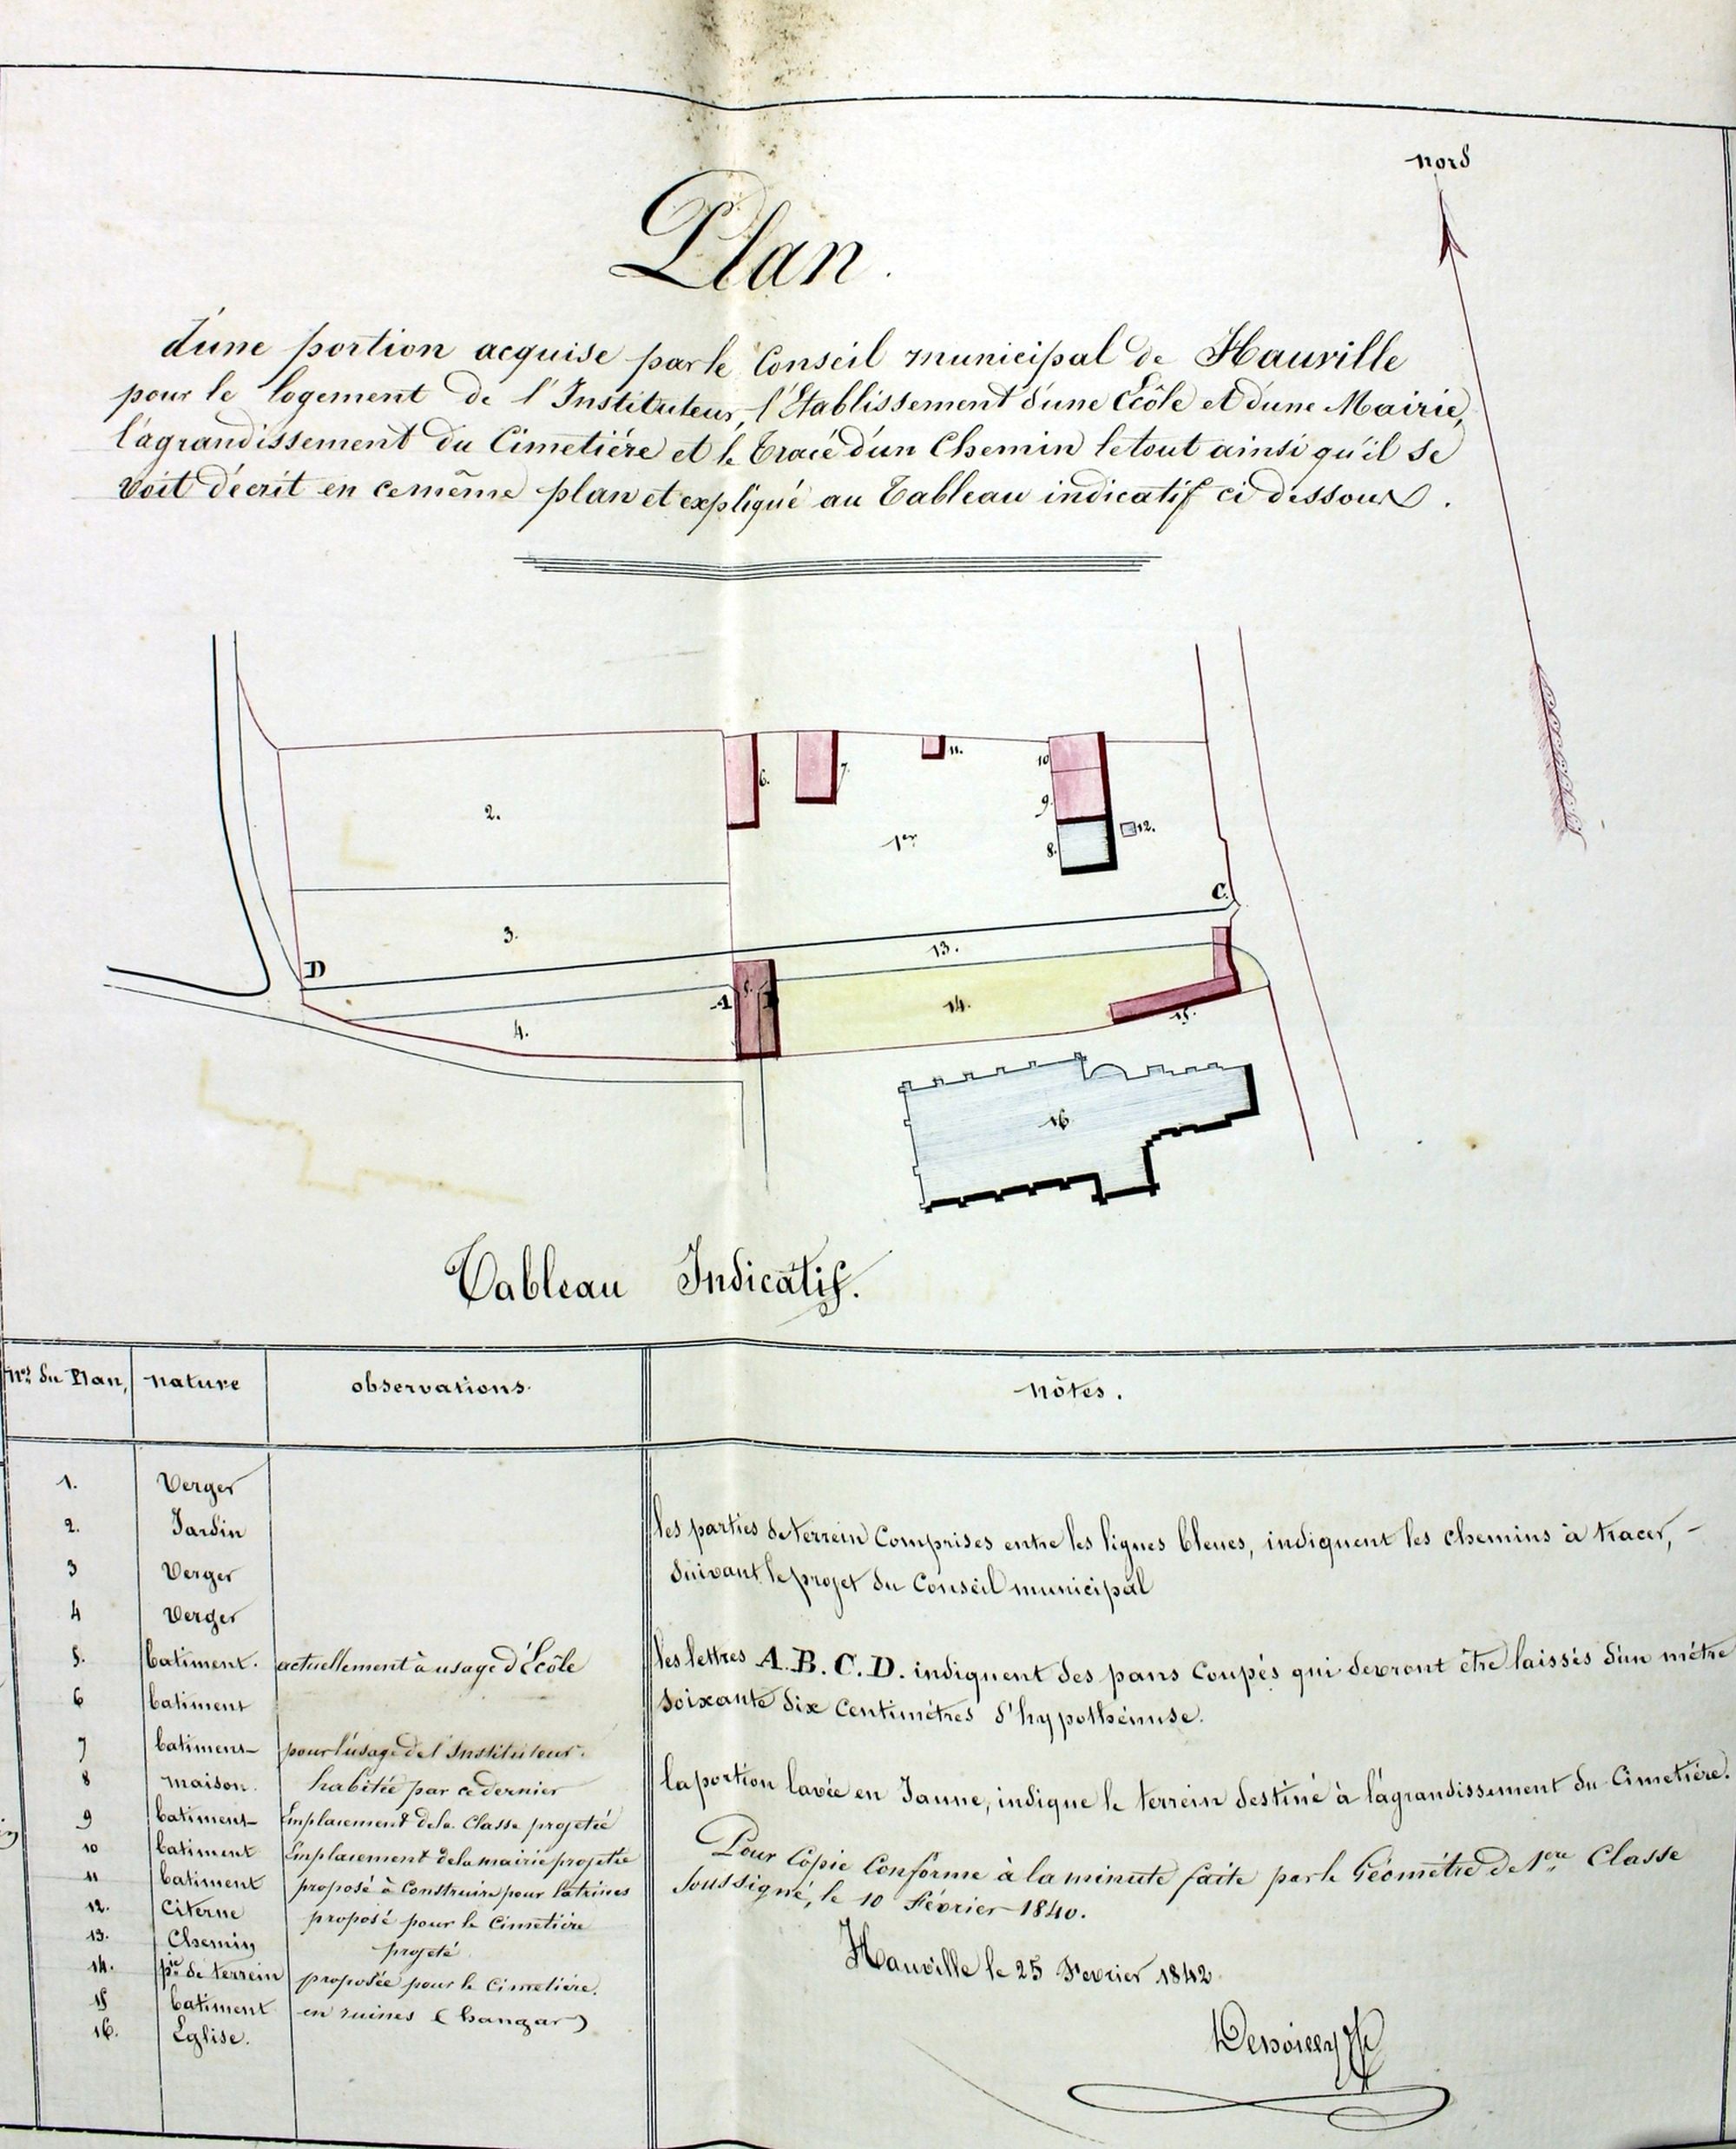 nord
Plan.
d'une portion acquise par le Conseil municipal de Hauville
pour le logement de l'Instituteur, l'Etablissement d'une Ecôle et d'une Mairie,
l'agrandissement du Cimetiére et le Tracé d'un Chemin le tout ainsi qu'il se
voit décrit en ce même plan et expliqué au Tableau indicatif ci dessous.
2.
6.
7.
11.
10
9.
8.
12.
1er
3.
C.
13.
D
A
5.
4.
14.
15.
16
Tableau Indicatif.
Nos du Plan, nature observations. nôtes.
1. Verger
2. Jardin
3 Verger
4 Verger
5. batiment. actuellement à usage d'Ecôle
6 batiment
7 batiment pour l'usage de l'Instituteur.
8 maison. habitée par ce dernier
9 batiment Emplacement de la Classe projetée
10 batiment Emplacement de la mairie projetée
11 batiment proposé à Construire pour latrines
12. Citerne proposé pour le Cimetiére
13. Chemin projeté
14. pie de terrein proposée pour le Cimetiére.
15 batiment en ruines (hangar)
16. Eglise.
les parties de terrein Comprises entre les lignes bleues, indiquent les chemins à tracer,
suivant le projet du Conseil municipal
les lettres A.B.C.D. indiquent des pans Coupés qui devront être laissés d'un métre
soixante dix Centimétres d'hypothénuse.
la portion lavée en Jaune, indique le terrein destiné à l'agrandissement du Cimetiére.
Pour Copie Conforme à la minute faite par le Géométre de 1ere Classe
soussigné, le 10 Février 1840.
Hauville le 25 Fevrier 1842